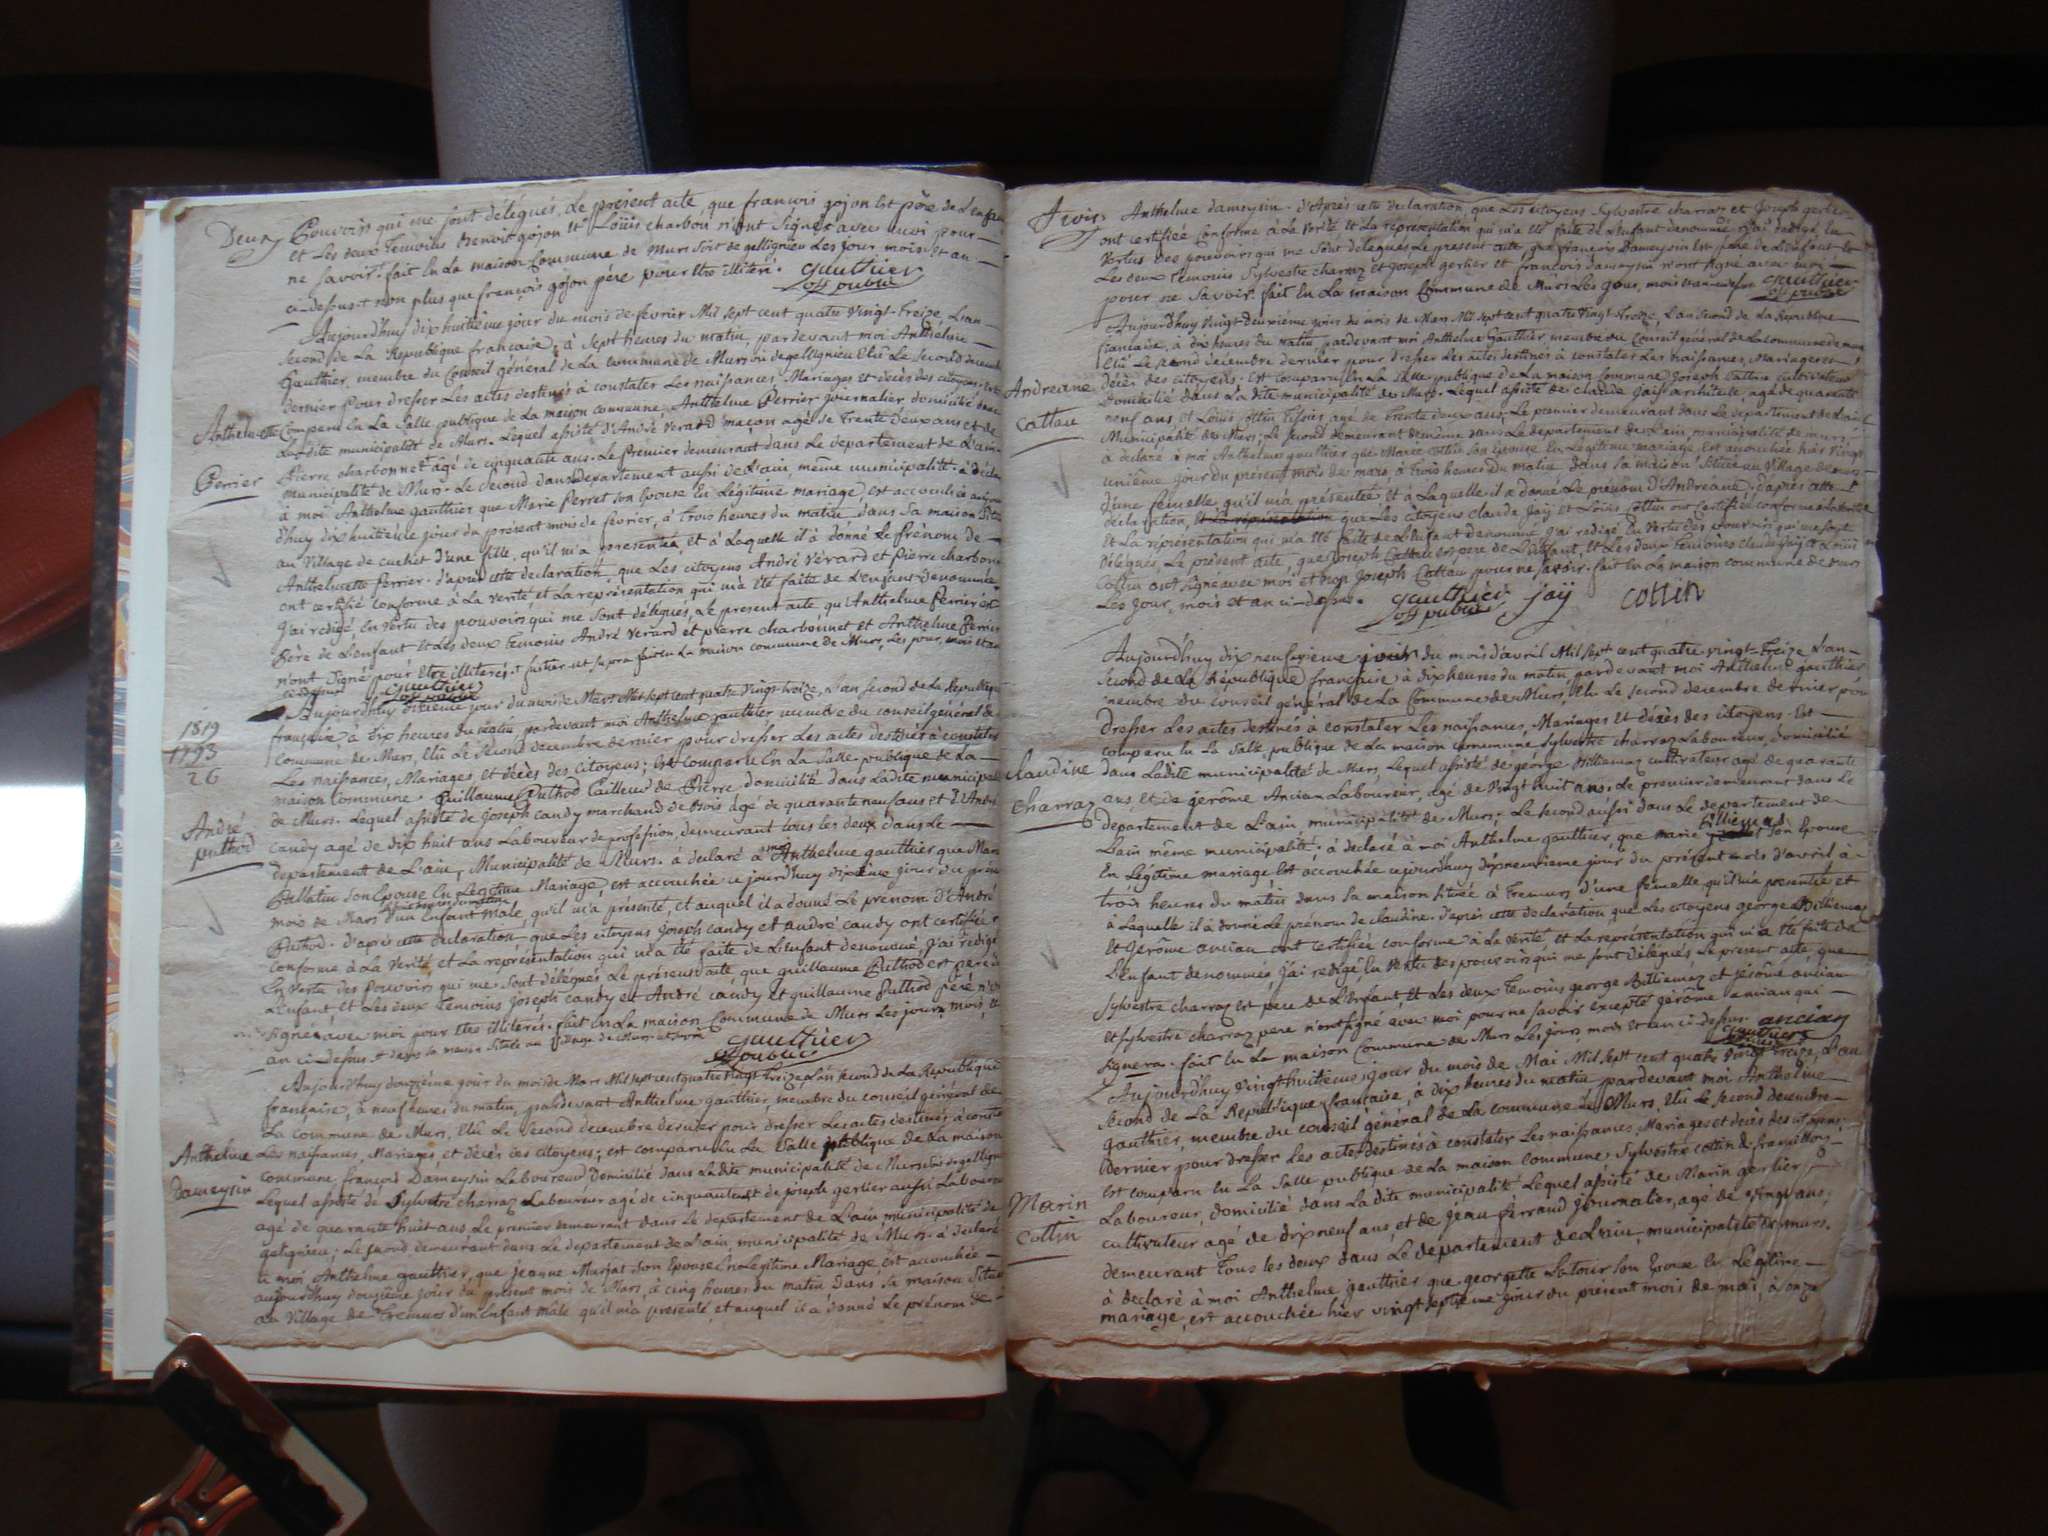 Deux
Pouvoirs qui me sont délégués, Le présent acte, que françois gojon Est père de L'enfant
et Les deux Temoins Benoit gojon et Loüis charbon n'ont Signés avec moi pour
ne Savoir. fait En La maison Commune de Murs soit de gellignieu Les jour mois et an
ci-dessus + non plus que françois gojon père pour être illiteré. gauthier
off public
Aujourd'huy dix huitième jour du mois de fevrier Mil sept cent quatre vingt-treize L'an
Second de La Republique francaise, à Sept heures du matin, pardevant moi Anthelme
Gauthier, membre du Conseil général de La commune de Murs ou de gellignieu Elû Le second decemb
dernier pour dresser Les actes destinés à constater Les naissances, Mariages et décès des citoyens. Est
Comparu En La Salle publique de La maison commune, Anthelme Perrier journalier domicilié dans
Ladite municipalité de Murs. Lequel assisté d'André Verard maçon agé de Trente Deux ans et de
Anthelmette
Perrier
Pierre charbonnet âgé de cinquante ans. Le Premier demeurant dans Le departement de L'ain
municipalité de Murs. Le Second dans Departement aussi de L'ain, même municipalité. à déclaré
à moi Anthelme gauthier que Marie Perret son Epouse En Légitime mariage, est accouchée
d'huy dix huitième jour du présent mois de fevrier, à trois heures du matin dans sa maison
au Village de cuchet d'une fille, qu'il m'a presentée, et à Laquelle il à donné Le Prénom de
Anthelmette Perrier. d'après cette declaration que Les citoyens André Vérard et Pierre charbonnet
ont certifié conforme à La verité, et La représentation qui m'a été faite de L'enfant denommée
j'ai redigé, En vertu des pouvoirs qui me sont délégués, Le present acte qu'Anthelme Perrier est
Père de L'enfant et Les deux Temoins André Verard et pierre charbonnet et Anthelme Perrier
n'ont Signé pour Etre illiterés. fait en La maison commune de Murs, Les jour, mois et an
ci-dessus gauthier
off public
Aujourd'huy dixième jour du mois de Mars Mil sept cent quatre vingt-treize, L'an second de La Republique
française, à Dix heures du matin, pardevant moi Anthelme gauthier, membre du conseil général de
1819
1793
26
Commune de Murs, Elû Le Second decembre dernier pour dresser Les actes destinés à constater
Les naissances, Mariages et décès des citoyens; Est comparu En La Salle publique de La
maison Commune. Guillaume Puthod Tailleur de Pierre domicilié dans Ladite municipal
de Murs. Lequel assisté de Joseph Candy marchand de bois âgé de quarante neuf ans et d'André
André
puthod
candy agé de dix huit ans Laboureur de profession, demeurant tous les deux dans Le
departement de L'ain, Municipalité de Murs. à déclaré à moi Anthelme gauthier que
Pellatin son Epouse En Légitime Mariage, est accouchée ce jourd'huy dixième jour du prés
mois de Mars d'un Enfant Male, qu'il m'a présenté, et auquel il a donné Le prenom d'André
Puthod. D'après cette declaration que Les citoyens Joseph candy et André candy ont certifiée
conforme à La Verité et La representation qui m'a été faite de L'enfant denommé, j'ai redigé
En vertu des pouvoirs qui me sont délégués Le présent acte, que guillaume Puthod est père de
L'enfant et Les deux Temoins Joseph candy et André candy et guillaume Puthod père n'ont
signés avec moi pour être illiterés. fait En La maison Commune de Murs Les jours, mois, et
an ci-dessus + dans sa maison située au village de Murs gauthier
off public
Aujourd'huy douzième jour du mois de Mars Mil sept cent quatre vingt treize L'an second de La Republique
française, à neuf heures du matin, pardevant Anthelme gauthier, membre du conseil général de
La commune de Murs, Elû Le second decembre dernier pour dresser Les actes destinés à const
Anthelme
Dameysin
Les naissances, Mariages et décès des citoyens; est comparu En La Salle publique de La maison
commune, françois Dameysin Laboureur Domicilié dans Ladite municipalité de Murs
Lequel assisté de Sylvestre charraz Laboureur agé de cinquante et de joseph gerlier aussi Laboureur
agé de quarante huit ans Le premier demeurant dans Le departement de L'ain municipalité de
gelignieu; Le second demeurant dans Le departement de L'ain, municipalité de Murs. à declaré
à moi Anthelme gauthier, que jeanne Murjat son Epouse En Legitime Mariage, est accouchée
aujourd'huy douzième jour du présent mois de Mars, à cinq heures du matin dans sa maison Située
au Village de Tremurs d'un Enfant Male qu'il m'a presenté, et auquel il a donné Le prénom de
Trois
Anthelme dameysin. d'Après cette declaration, que Les citoyens Sylvestre charraz et Joseph gerlier
ont certifiée Conforme à La Verité et La représentation qui m'a été faite de L'enfant denommé, j'ai redigé, En
Vertus des pouvoirs qui me sont délégués Le present acte, que françois Dameysin est père de L'enfant et
Les deux Temoins Sylvestre charraz et Joseph gerlier et françois dameysin n'ont signé avec moi
pour ne Savoir. fait En La maison Commune de Murs Les jour, mois et an ci-dessus gauthier
off public
Aujourd'huy vingt-deuxième jour du mois de Mars Mil sept cent quatre vingt Treize, L'an Second de La Republique
francaise, à dix heures du matin, pardevant moi Anthelme Gauthier, membre du Conseil général de La commune de murs
Elû Le second decembre dernier pour dresser Les actes destinés à constater Les naissances, Mariages et
Andreane
Cattau
décès des citoyens. est comparu En La Salle publique de La maison Commune Joseph Cattau cultivateur
Domicilié dans La dite municipalité de Murs. Lequel assisté de claude Jaÿ architecte, agé de quarante
neuf ans et Loüis Cottin, agé de Trente deux ans; Le premier demeurant dans Le departement de L'ain
Municipalité de Murs; Le second demeurant de même dans Le departement de L'ain, municipalité de murs.
à declaré à moi Anthelme gauthier que Marie Cottin son Epouse En Légitime mariage, Est accouchée hier vingt
unième jour du présent mois de mars, à trois heures du matin, dans sa maison Située au Village de murs
d'une femelle, qu'il m'a présentée, et à Laquelle il a donné Le prénom d'Andréane. d'après cette
déclaration, et La représentation que Les citoyens claude Jaÿ et Loüis Cottin ont certifiée conforme à La verité
et La représentation qui m'a été faite de L'enfant denommé j'ai redigé En vertu des pouvoirs qui me sont
délégués, Le présent acte, que Joseph Cattau est pere de L'enfant, et Les deux Temoins claude Jaÿ et Loüis
Cottin ont signé avec moi et non Joseph Cattau pour ne Savoir. fait En La maison commune de murs
Les jour, mois et an ci-dessus. gauthier jaÿ cottin
off public
Aujourd'huy dix neuvieme jour du mois d'avril Mil sept cent quatre vingt-Treize L'an
second de La République française à dix heures du matin, pardevant moi Anthelme gauthier
membre du conseil général de La Commune de Murs, Elû Le second decembre dernier pour
dresser Les actes destinés à constater Les naissances, Mariages et décès des citoyens. Est
comparu En La Salle publique de La maison commune Sylvestre charraz Laboureur, domicilié
Claudine
charraz
dans Ladite municipalité de Murs, Lequel assisté de george Billiemaz cultivateur agé de quarante
ans, et de jerôme Ancian Laboureur, agé de Vingt huit ans. Le premier demeurant dans Le
departement de L'ain, municipalité de Murs; Le second aussi dans Le departement de
L'ain même municipalité; à déclaré à moi Anthelme gauthier, que marie Billiemaz son Epouse
En Légitime mariage Est accouchée cejourd'huy dix neuvieme jour du présent mois d'avril à
trois heures du matin dans sa maison située à Tremurs d'une femelle qu'il m'a presentée et
à Laquelle il à donné Le prénom de claudine. d'après cette déclaration que Les citoyens george Billiemaz
et Jerôme ancian ont certifiée conforme à La verité et La représentation qui m'a été faite de
L'enfant denommé, j'ai redigé En vertu des pouvoirs qui me sont délégués Le present acte, que
Sylvestre charraz est pere de L'enfant et Les deux Temoins george Billiemaz et jérôme ancian
et sylvestre charraz pere n'ont signé avec moi pour ne Savoir excepté jerôme ancian qui
signera. fait En La maison Commune de Murs Les jours, mois et an ci-dessus. ancian
gauthier
Aujourd'huy vingt huitième jour du mois de Mai Mil sept cent quatre vingt treize, L'an
second de La Republique française, à dix heures du matin pardevant moi Anthelme
gauthier, membre du conseil général de La commune de Murs, Elû Le second decembre
Dernier pour dresser Les actes destinés à constater Les naissances, Mariages et décès des citoyens;
Est comparu En La Salle publique de La maison Commune, Sylvestre cottin
Marin
Cottin
Laboureur, domicilié dans La dite municipalité Lequel assisté de Marin gerlier
cultivateur agé de dix neuf ans, et de Jean ferrand journalier, agé de vingt ans,
demeurant Tous les deux dans Le departement de L'ain, municipalité de murs.
à declaré à moi Anthelme gauthier que georgette Latour son Epouse En Légitime
mariage, est accouchée hier vingt septième jour du présent mois de mai, à onze